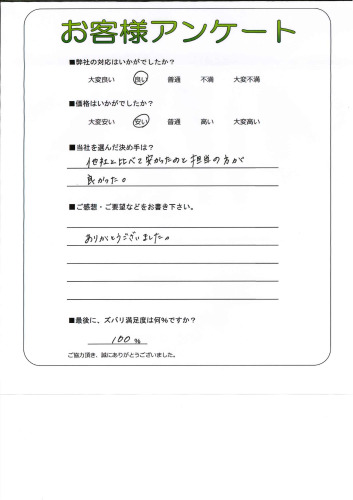 お客様アンケート
■弊社の対応はいかがでしたか？
大変良い 良い 普通 不満 大変不満
■価格はいかがでしたか？
大変安い 安い 普通 高い 大変高い
■当社を選んだ決め手は？
他社と比べて安かったのと担当の方が
良かった。
■ご感想・ご要望などをお書き下さい。
ありがとうございました。
■最後に、ズバリ満足度は何％ですか？
100 %
ご協力頂き、誠にありがとうございました。